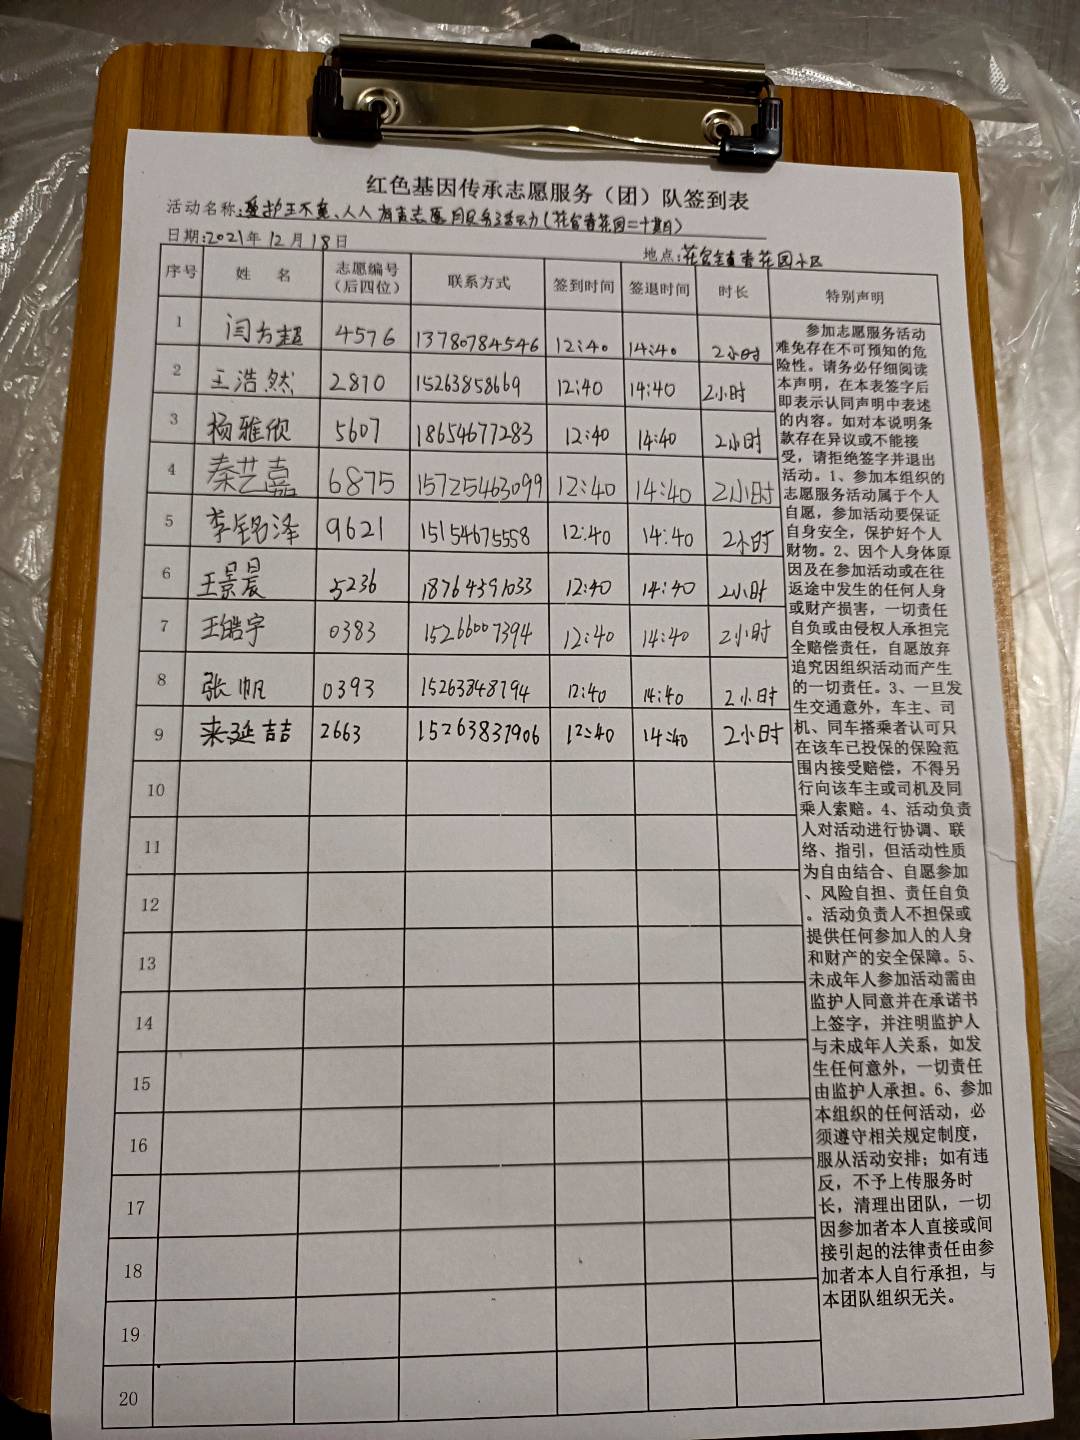 红色基因传承志愿服务（团）队签到表
活动名称:爱护环境、人人有责志愿服务活动(花官春花园二十期)
日期:2021年12月18日
地点:花官镇春花园小区
序号 姓 名 志愿编号（后四位） 联系方式 签到时间 签退时间 时长 特别声明
1 闫方超 4576 13780784546 12:40 14:40 2小时
2 王浩然 2810 15263858669 12:40 14:40 2小时
3 杨雅欣 5607 18654677283 12:40 14:40 2小时
4 秦艺嘉 6875 15725463099 12:40 14:40 2小时
5 李铭泽 9621 15154675558 12:40 14:40 2小时
6 王景晨 5236 18764591033 12:40 14:40 2小时
7 王皓宇 0383 15266007394 12:40 14:40 2小时
8 张帆 0393 15263848194 12:40 14:40 2小时
9 来延吉吉 2663 15263831906 12:40 14:40 2小时
10
11
12
13
14
15
16
17
18
19
20
参加志愿服务活动
难免存在不可预知的危
险性。请务必仔细阅读
本声明，在本表签字后
即表示认同声明中表述
的内容。如对本说明条
款存在异议或不能接
受，请拒绝签字并退出
活动。1、参加本组织的
志愿服务活动属于个人
自愿，参加活动要保证
自身安全，保护好个人
财物。2、因个人身体原
因及在参加活动或在往
返途中发生的任何人身
或财产损害，一切责任
自负或由侵权人承担完
全赔偿责任，自愿放弃
追究因组织活动而产生
的一切责任。3、一旦发
生交通意外，车主、司
机、同车搭乘者认可只
在该车已投保的保险范
围内接受赔偿，不得另
行向该车主或司机及同
乘人索赔。4、活动负责
人对活动进行协调、联
络、指引，但活动性质
为自由结合、自愿参加
、风险自担、责任自负
。活动负责人不担保或
提供任何参加人的人身
和财产的安全保障。5、
未成年人参加活动需由
监护人同意并在承诺书
上签字，并注明监护人
与未成年人关系，如发
生任何意外，一切责任
由监护人承担。6、参加
本组织的任何活动，必
须遵守相关规定制度，
服从活动安排；如有违
反，不予上传服务时
长，清理出团队，一切
因参加者本人直接或间
接引起的法律责任由参
加者本人自行承担，与
本团队组织无关。